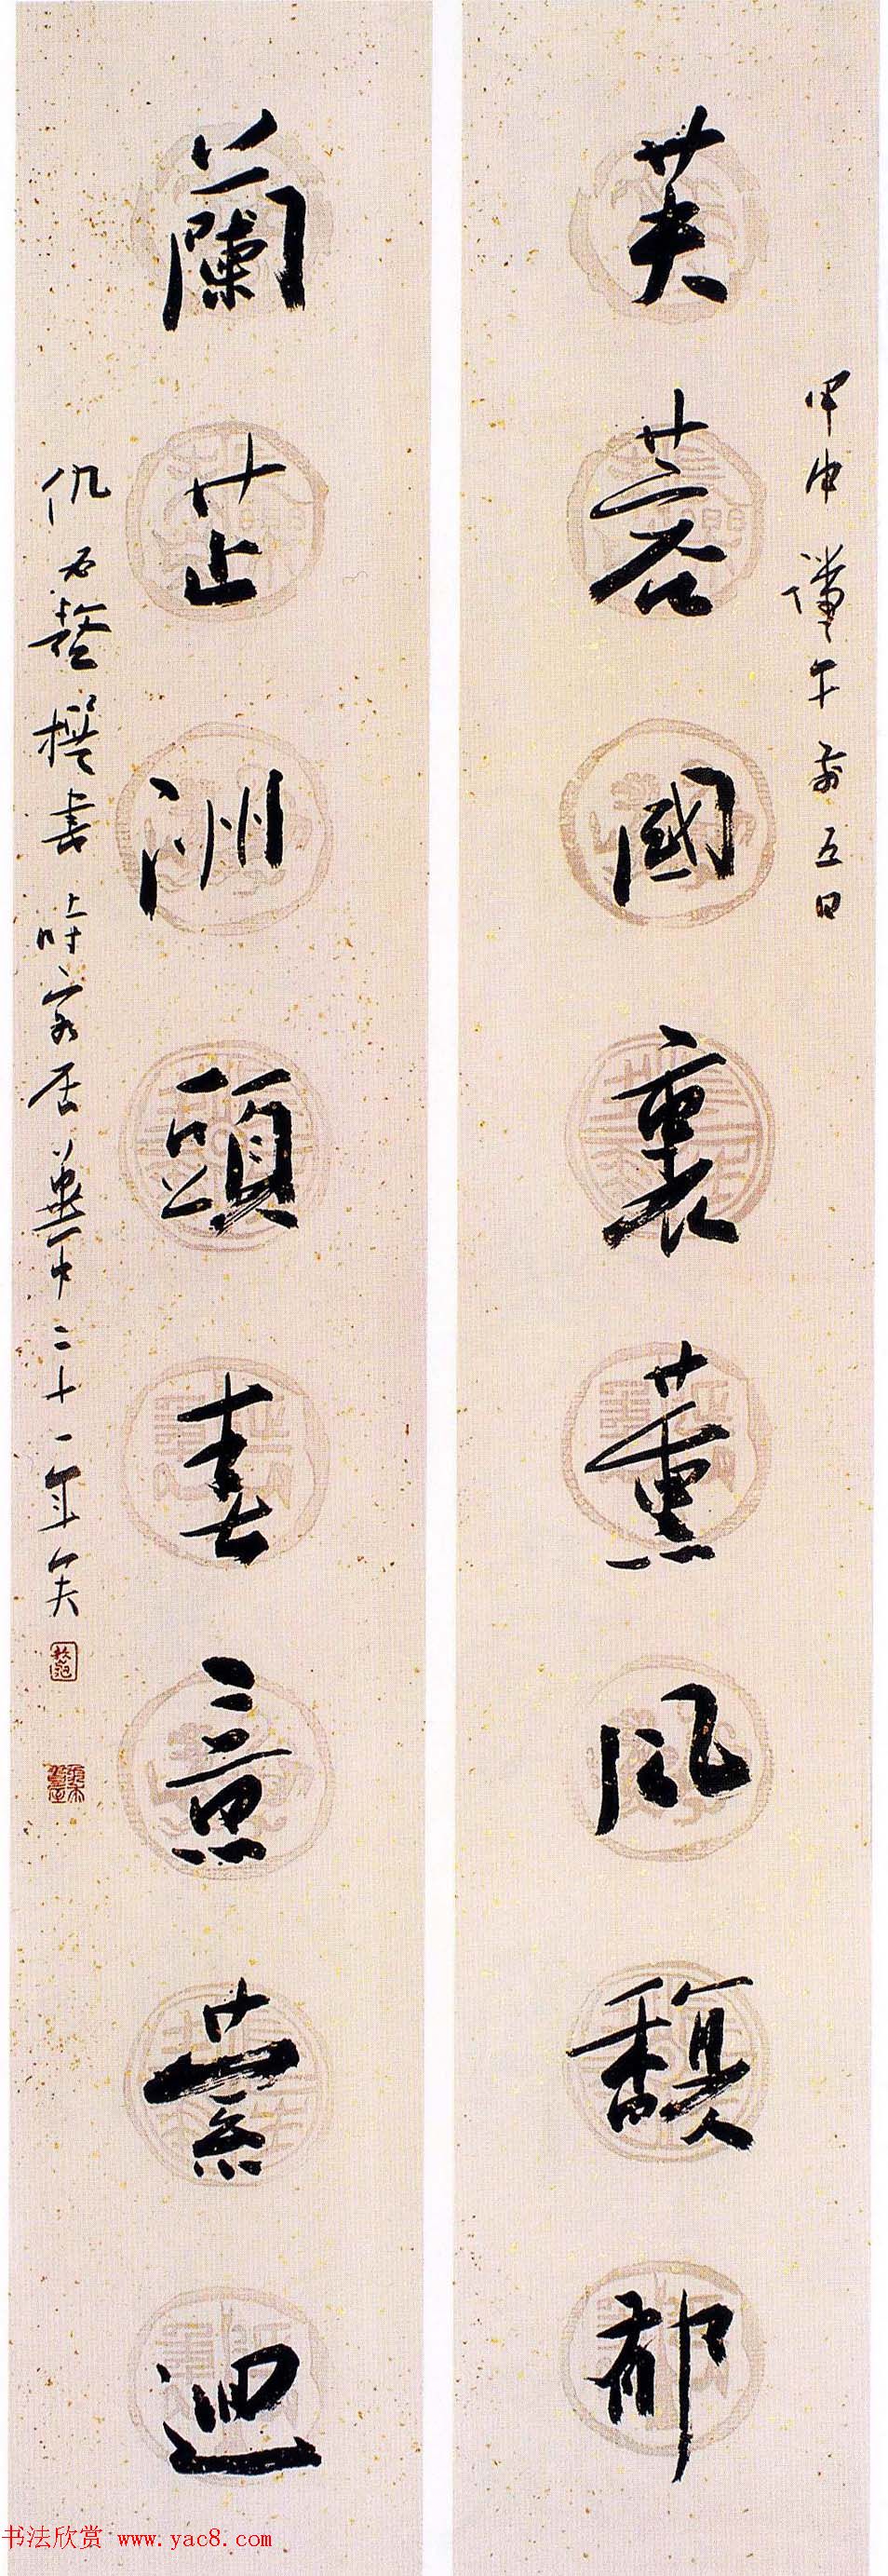 甲申午前五日
芙蓉國裏薰風馥郁
蘭芷洲頭春意萦迴
撰書時客居華中二十一年矣
书法欣赏 www.yac8.com